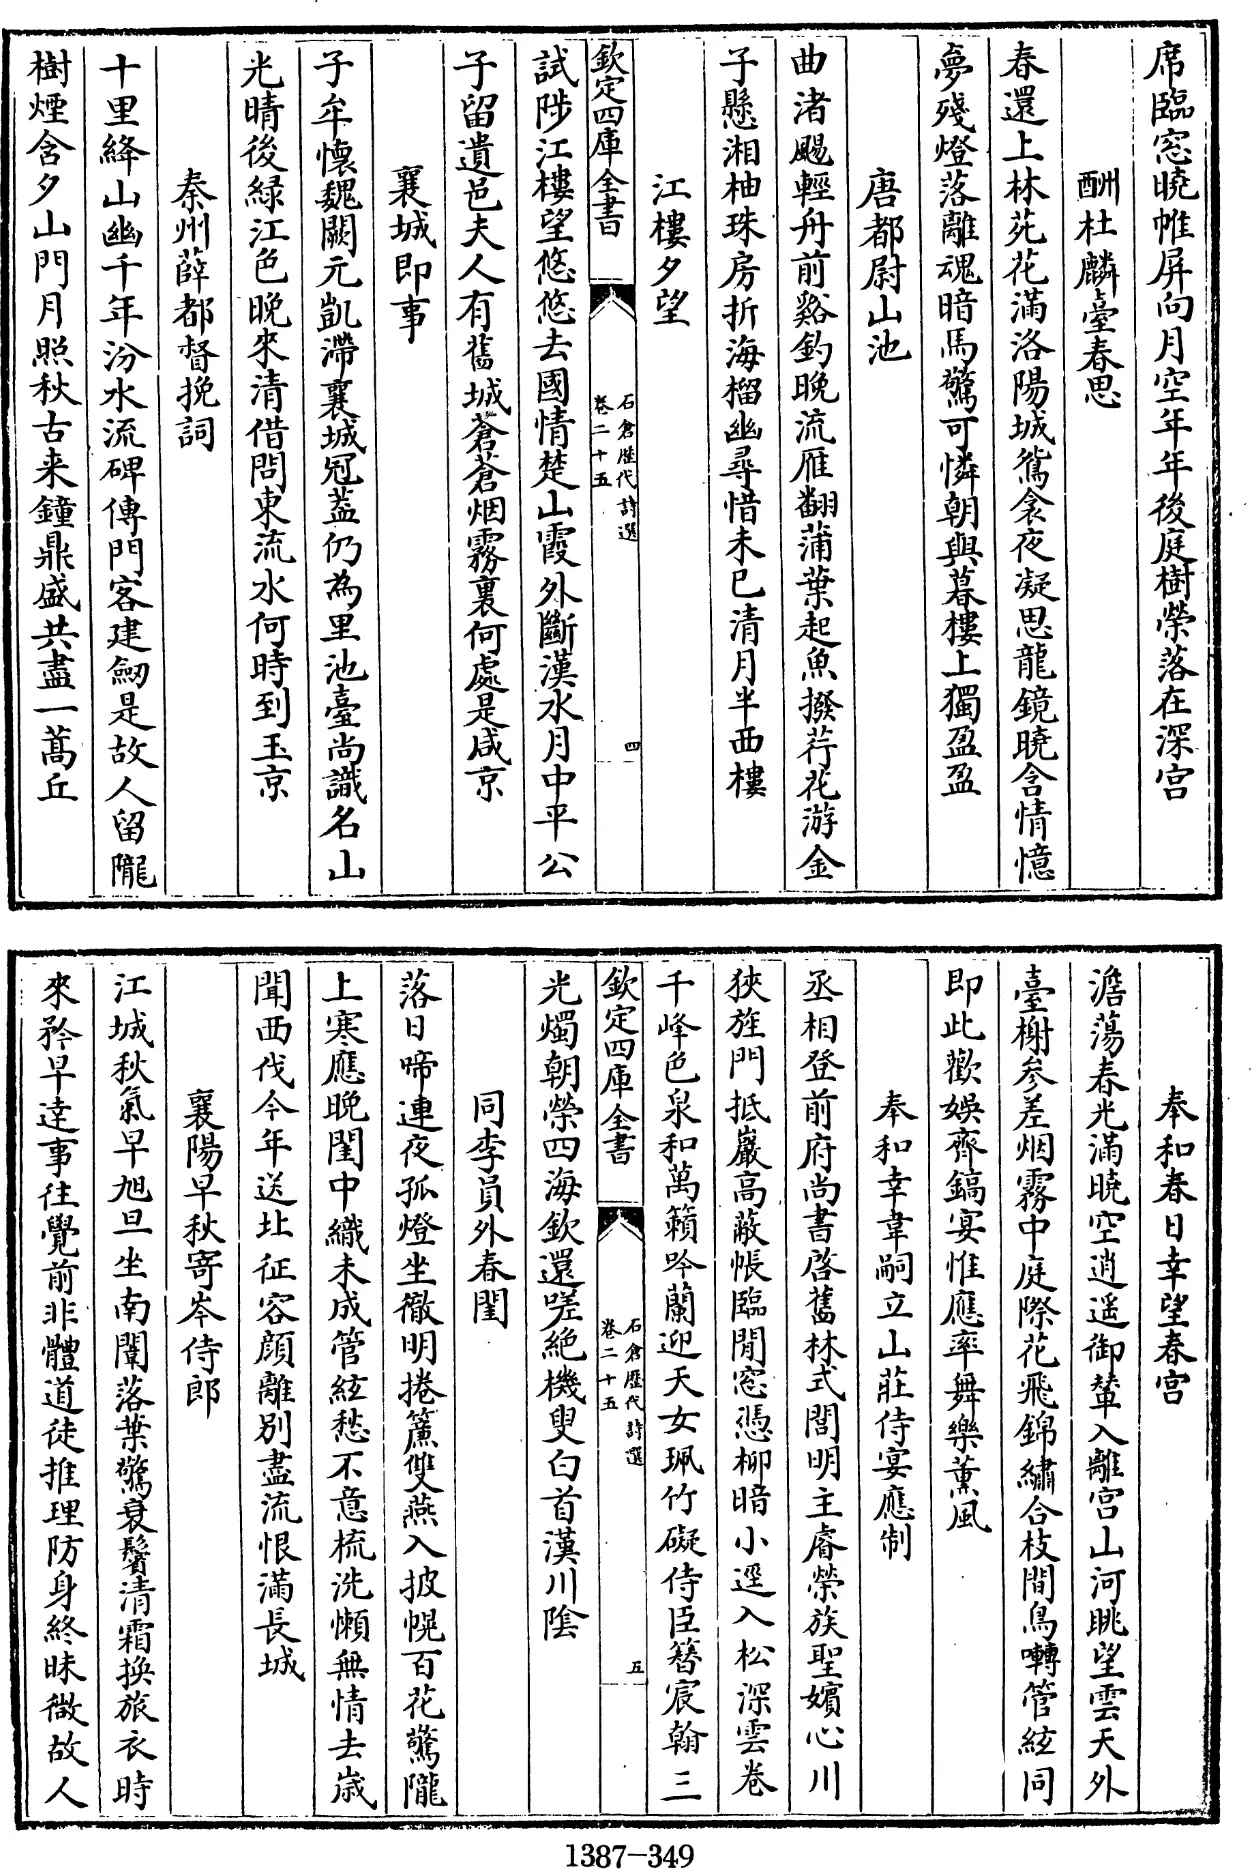 席臨窓曉帷屏向月空年年後庭樹榮落在深宮
酬杜麟臺春思
春還上林苑花滿洛陽城鴛衾夜凝思龍鏡曉含情憶
夢殘燈落離魂暗馬驚可憐朝與暮樓上獨盈盈
唐都尉山池
曲渚颺輕舟前谿釣晚流雁翻蒲葉起魚撥荇花游金
子懸湘柚珠房折海榴幽尋惜未已清月半西樓
江樓夕望
欽定四庫全書
石倉歷代詩選
卷二十五
四
試陟江樓望悠悠去國情楚山霞外斷漢水月中平公
子留遺邑夫人有舊城蒼蒼烟霧裏何處是咸京
襄城即事
子牟懷魏闕元凱滯襄城冠蓋仍為里池臺尚識名山
光晴後緑江色晚來清借問東流水何時到玉京
秦州薛都督挽詞
十里絳山幽千年汾水流碑傳門客建劒是故人留隴
樹煙含夕山門月照秋古来鐘鼎盛共盡一蒿丘
奉和春日幸望春宮
澹蕩春光滿曉空逍遥御輦入離宮山河眺望雲天外
臺榭参差烟霧中庭際花飛錦繡合枝間鳥囀管絃同
即此歡娛齊鎬宴惟應率舞樂薫風
奉和幸韋嗣立山莊侍宴應制
丞相登前府尚書啓舊林式閭明主睿榮族聖嬪心川
狹旌門抵巖高蔽帳臨閒窓憑柳暗小逕入松深雲卷
千峰色泉和萬籟吟蘭迎天女珮竹礙侍臣簪宸翰三
欽定四庫全書
石倉歷代詩選
卷二十五
五
光燭朝榮四海欽還嗟絶機叟白首漢川陰
同李員外春閨
落日啼連夜孤燈坐徹明捲簾雙燕入披幌百花驚隴
上寒應晚閨中織未成管絃愁不意梳洗懶無情去歳
聞西伐今年送北征容顔離别盡流恨滿長城
襄陽早秋寄岑侍郎
江城秋氣早旭旦坐南闈落葉驚衰鬢清霜換旅衣時
來矜早達事往覺前非體道徒推理防身終昧微故人
1387-349